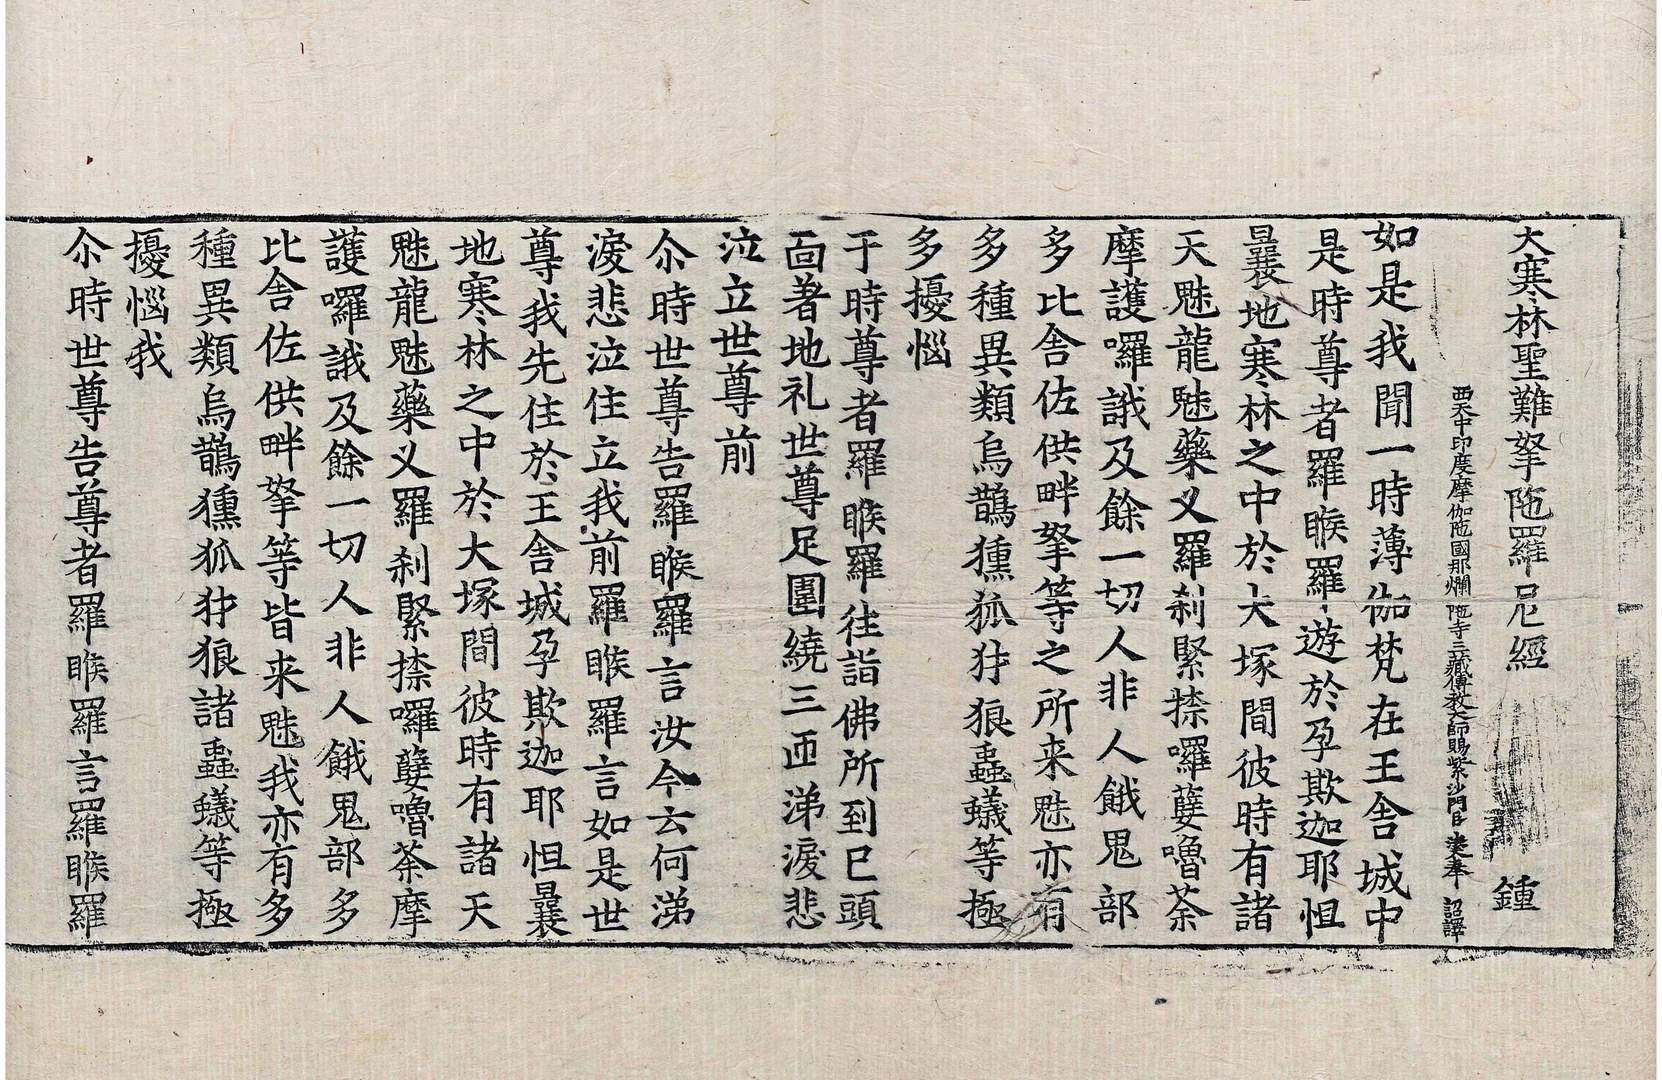 大寒林聖難拏陁羅尼經 鍾
西天中印度摩伽陁國那爛陁寺三藏傳教大師賜紫沙門臣法天奉 詔譯
如是我聞一時薄伽梵在王舍城中
是時尊者羅睺羅遊於孕欺迦耶怛
曩地寒林之中於大塚間彼時有諸
天魅龍魅藥叉羅刹緊捺囉㜸嚕荼
摩護囉誐及餘一切人非人餓鬼部
多比舍佐供畔拏等之所来魅亦有
多種異類烏鵲獯狐犲狼蟲蟻等極
多擾惱
于時尊者羅睺羅往詣佛所到已頭
面著地礼世尊足圍繞三匝涕淚悲
泣立世尊前
尒時世尊告羅睺羅言汝今云何涕
淚悲泣住立我前羅睺羅言如是世
尊我先住於王舍城孕欺迦耶怛曩
地寒林之中於大塚間彼時有諸天
魅龍魅藥叉羅刹緊捺囉㜸嚕荼摩
護囉誐及餘一切人非人餓鬼部多
比舍佐供畔拏等皆来魅我亦有多
種異類烏鵲獯狐犲狼諸蟲蟻等極
擾惱我
尒時世尊告尊者羅睺羅言羅睺羅